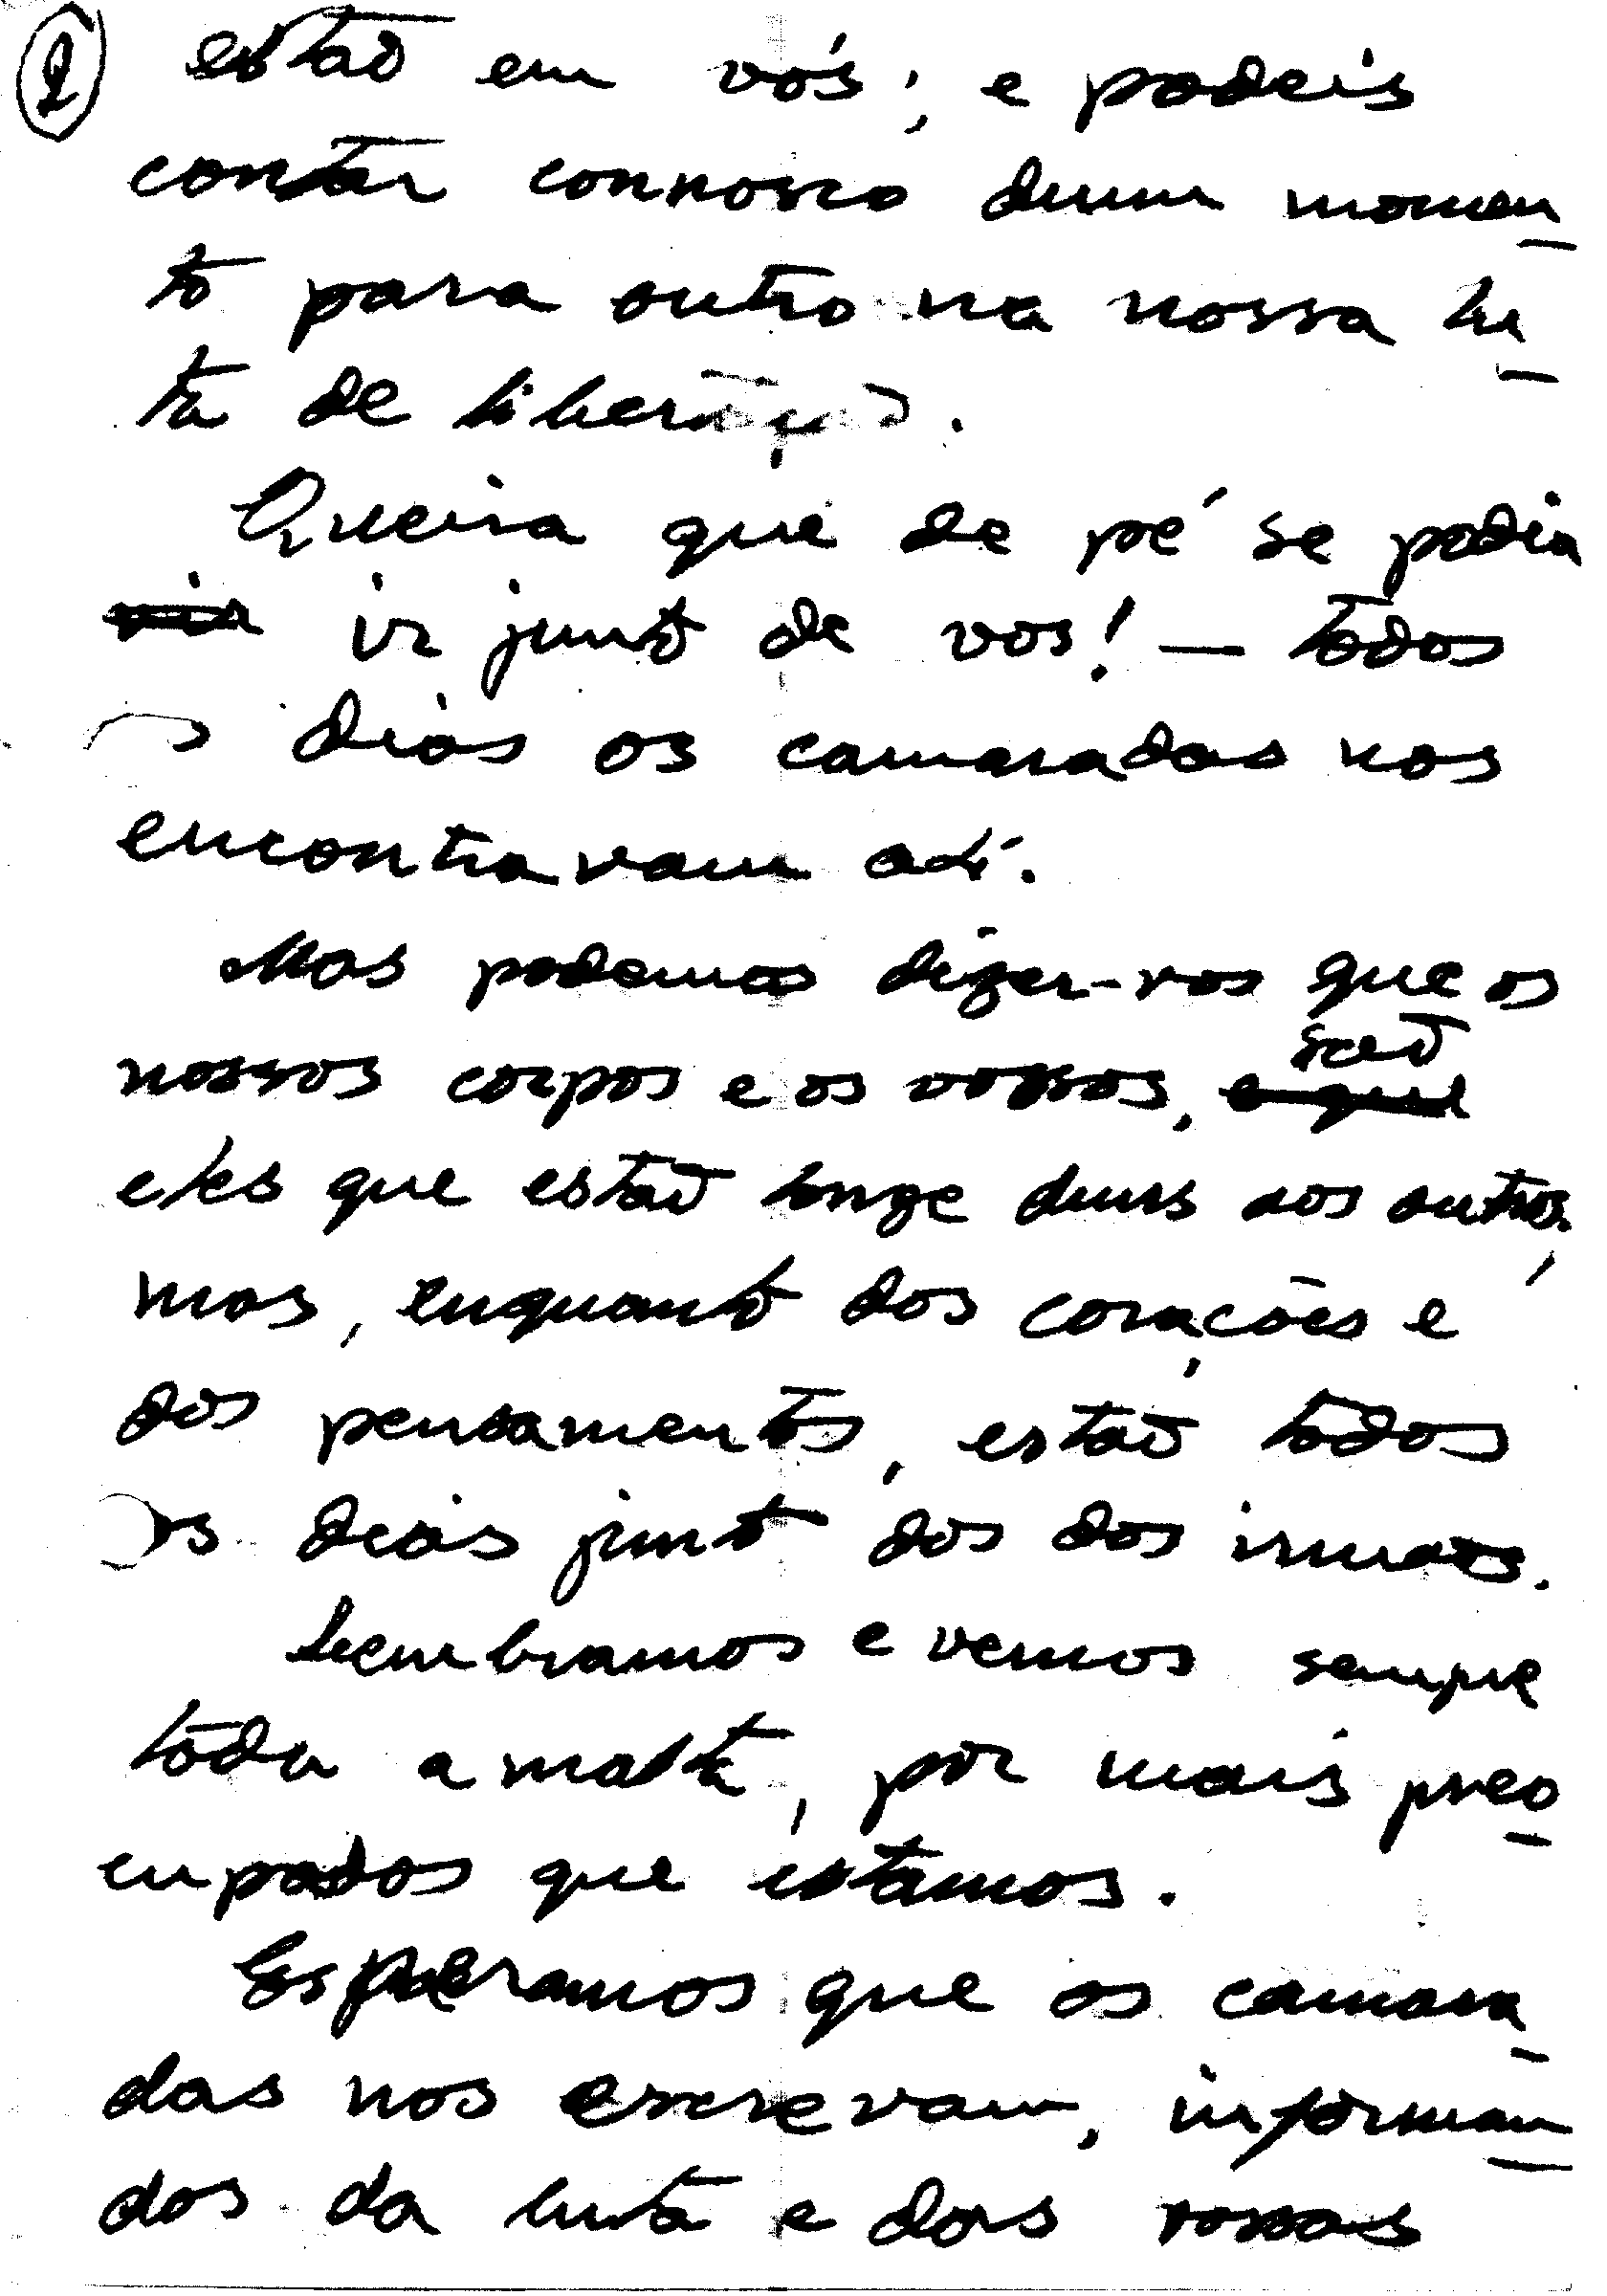 2 estão em vós; e podeis
contar connosco dum momen
to para outro na nossa lu
ta de libertação.
Queira que de pé se podia
via ir junto de vos! — todos
os dias os camaradas nos
encontravam aí.
Mas podemos dizer-vos que os
nossos corpos e os vossos, são
eles que estão longe duns aos outros,
mas, enquanto dos corações e
dos pensamentos, estão todos
os dias junto dos dos irmãos.
Lembramos e vemos sempre
toda a malta, por mais preo
cupados que estamos.
Esperamos que os camara
das nos escrevam, informan
dos da luta e das vossas